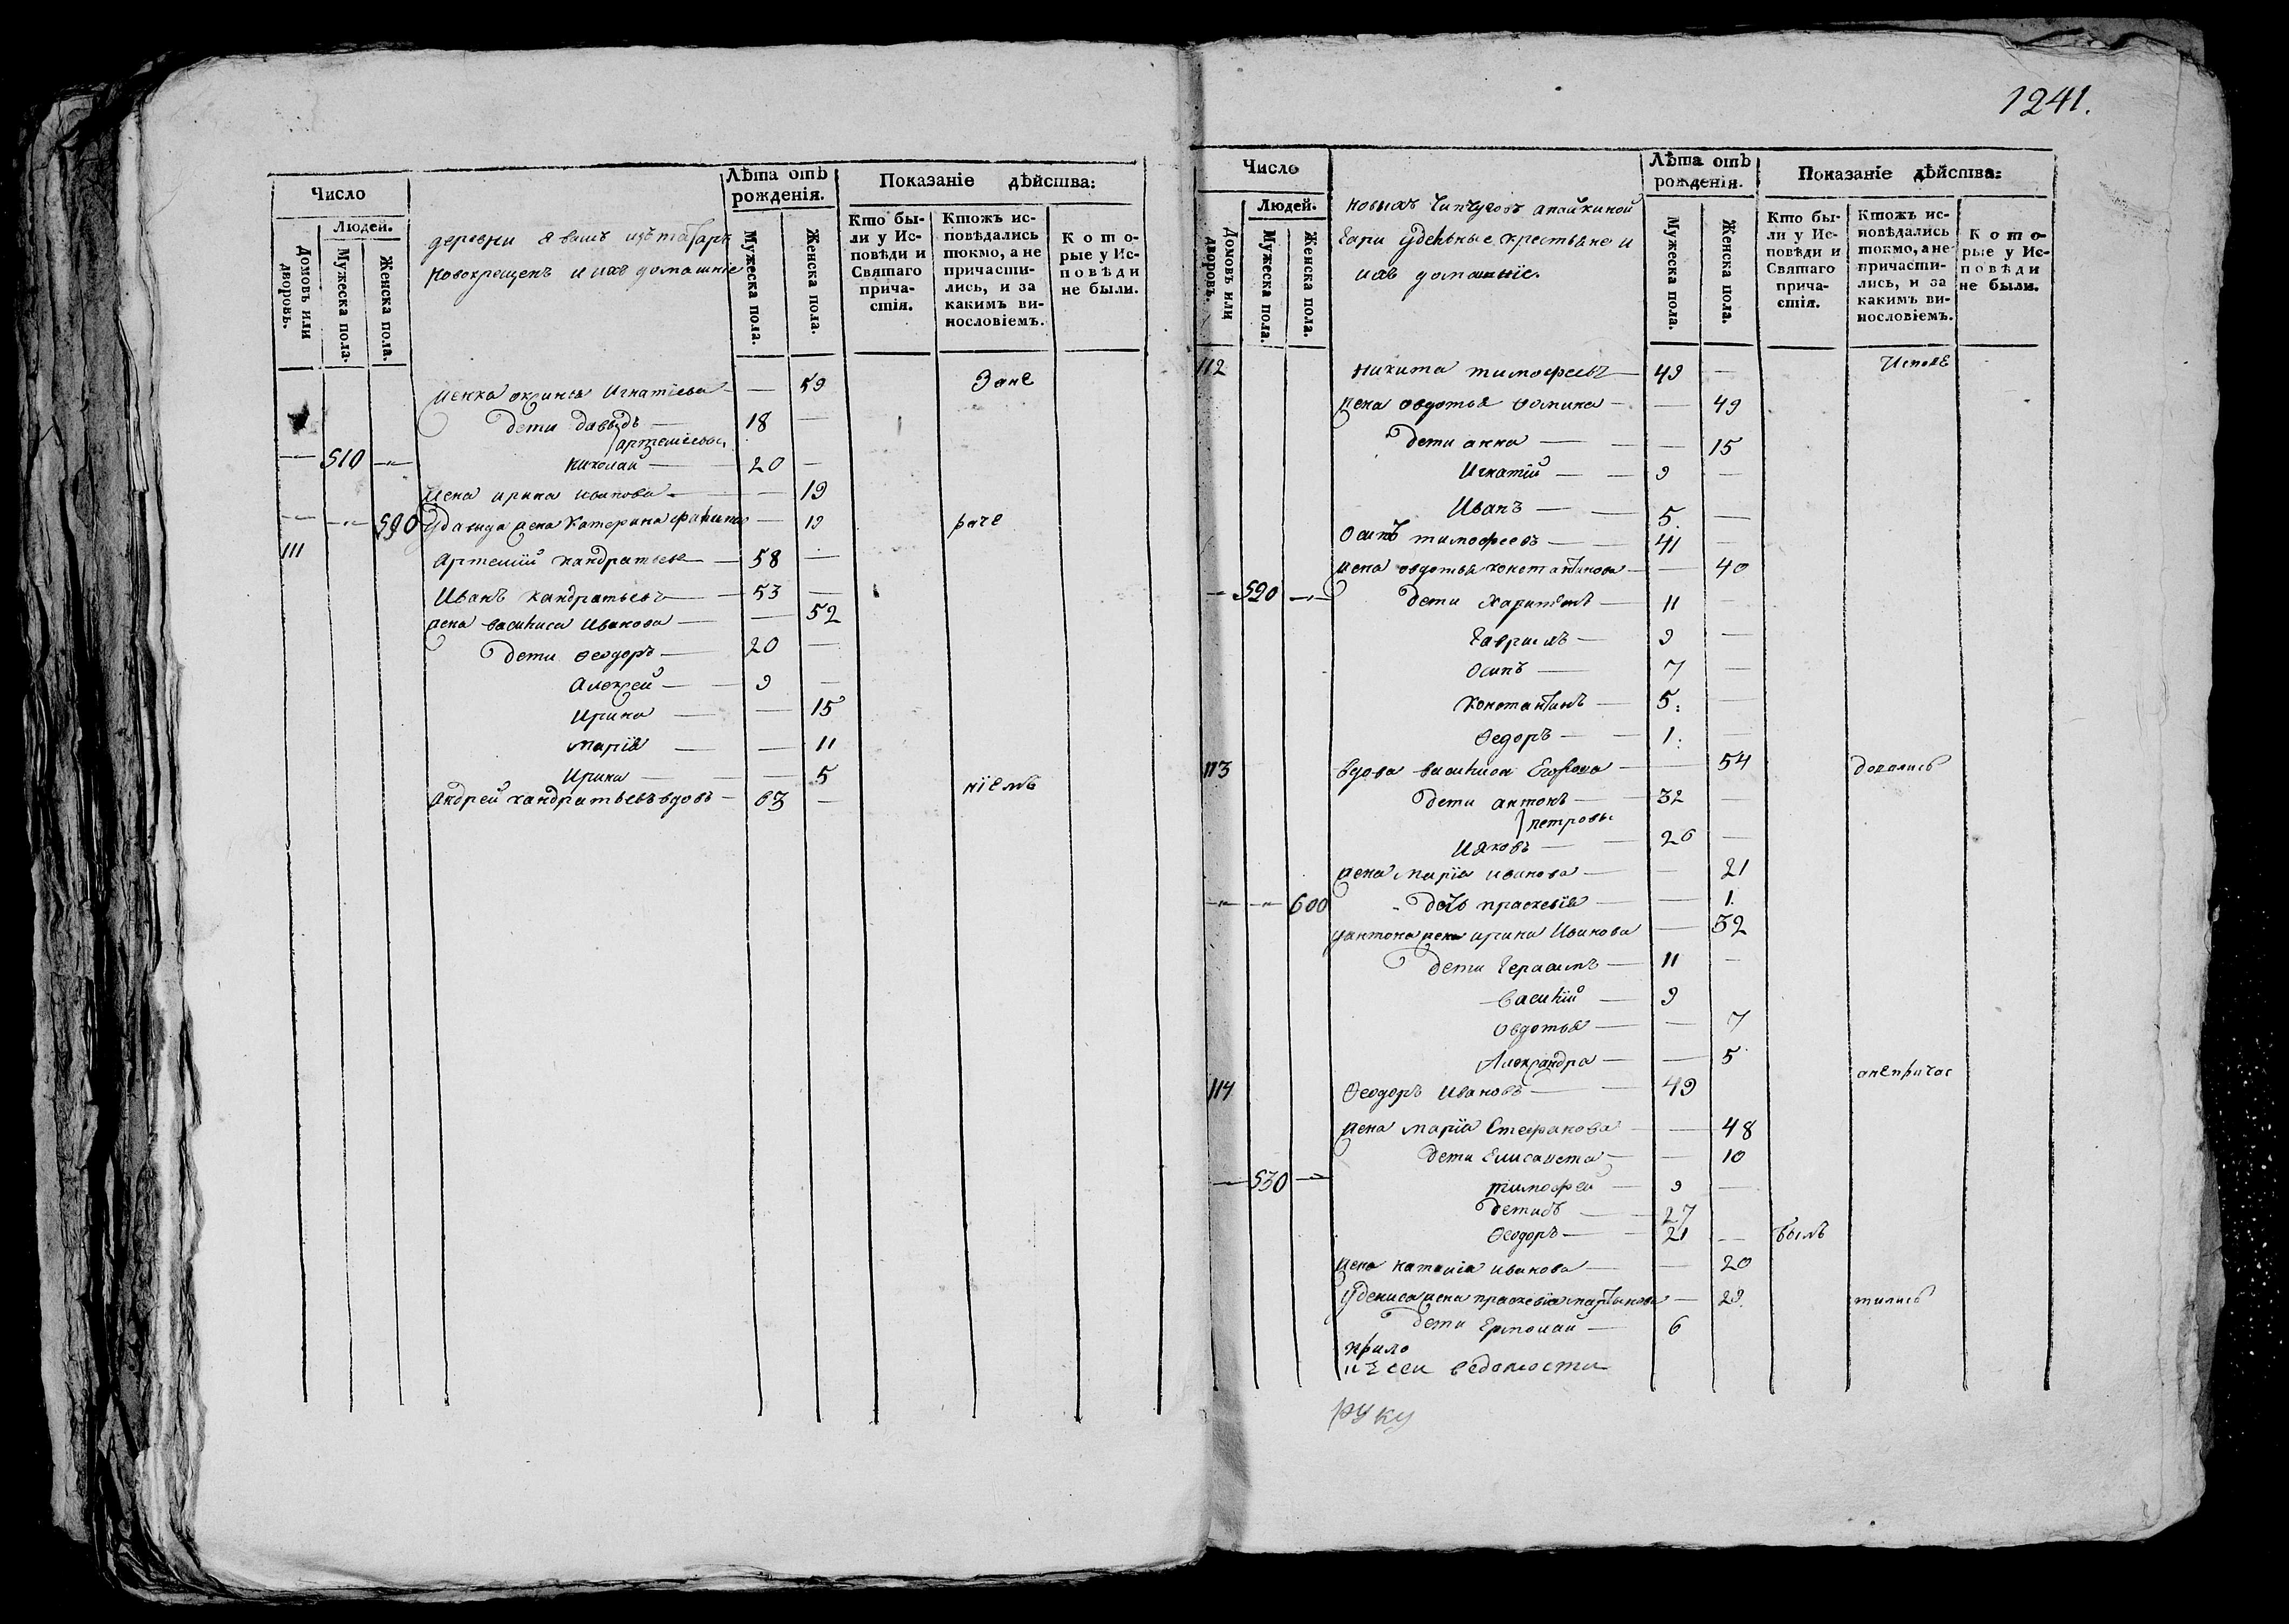 1241.
Число
Людей.
Домовъ или дворовъ.
Мужеска пола.
Женска пола.
деревни изъ татаръ
новокрещенъ и ихъ домашніе
Лѣта отъ рожденія.
Мужеска пола.
Женска пола.
Показаніе дѣйства:
Кто были у Исповѣди и Святаго причастія.
Ктожъ исповѣдались токмо, а не причастились, и за какимъ винословіемъ.
Которые у Исповѣди не были.
Игнатіева — 59 Зане
дети давыдъ — 18 —
артемьевы
510 николай — 20 —
жена ирина иванова — — 19
590 у давида жена катерина — 19 раче
111 Артемий кандратьевъ — 58 —
Иванъ кандратьевъ — 53 —
жена василиса Иванова — — 52
дети Ѳеодоръ — 20 —
Алексей — 9 —
Ирина — — 15
марія — — 11
Ирина — — 5
андрей кандратьевъ вдовъ — 63 — ніемъ
Число
Людей.
Домовъ или дворовъ.
Мужеска пола.
Женска пола.
новыхъ Чипчуговъ апайкиной
гари удельные крестьяне и
ихъ домашніе.
Лѣта отъ рожденія.
Мужеска пола.
Женска пола.
Показаніе дѣйства:
Кто были у Исповѣди и Святаго причастія.
Ктожъ исповѣдались токмо, а не причастились, и за какимъ винословіемъ.
Которые у Исповѣди не были.
112 никита тимофеевъ — 49 — Испове
жена овдотья Ѳомина — — 49
дети анна — — 15
Игнатій — 9 —
Иванъ — 5. —
Осипъ тимофеевъ — 41 —
жена овдотья константинова — — 40
520 дети Харитонъ — 11 —
Гаврилъ — 9 —
Осипъ — 7 —
Константинъ — 5: —
Ѳедоръ — 1: —
113 вдова Егорова — — 54 довались
дети антонъ — 32 —
петровы
Иаковъ — 26 —
жена марія иванова — — 21
600 дочь праскевія — — 1.
у антона жена ирина Иванова — 32
дети Герасимъ — 11 —
василій — 9
овдотья — — 7
Александра — — 5
114 Ѳеодоръ Ивановъ — 49 анепричас
жена марія Стефанова — — 48
дети Елисавета — — 10
530 тимофей — 9 —
денисъ — 27
Ѳеодоръ — 21 — былъ
жена наталіа иванова — — 20
у дениса жена праскевіа мартынова — 29. тились
дети Ермолай — 6
къ сеи ведомости
руку